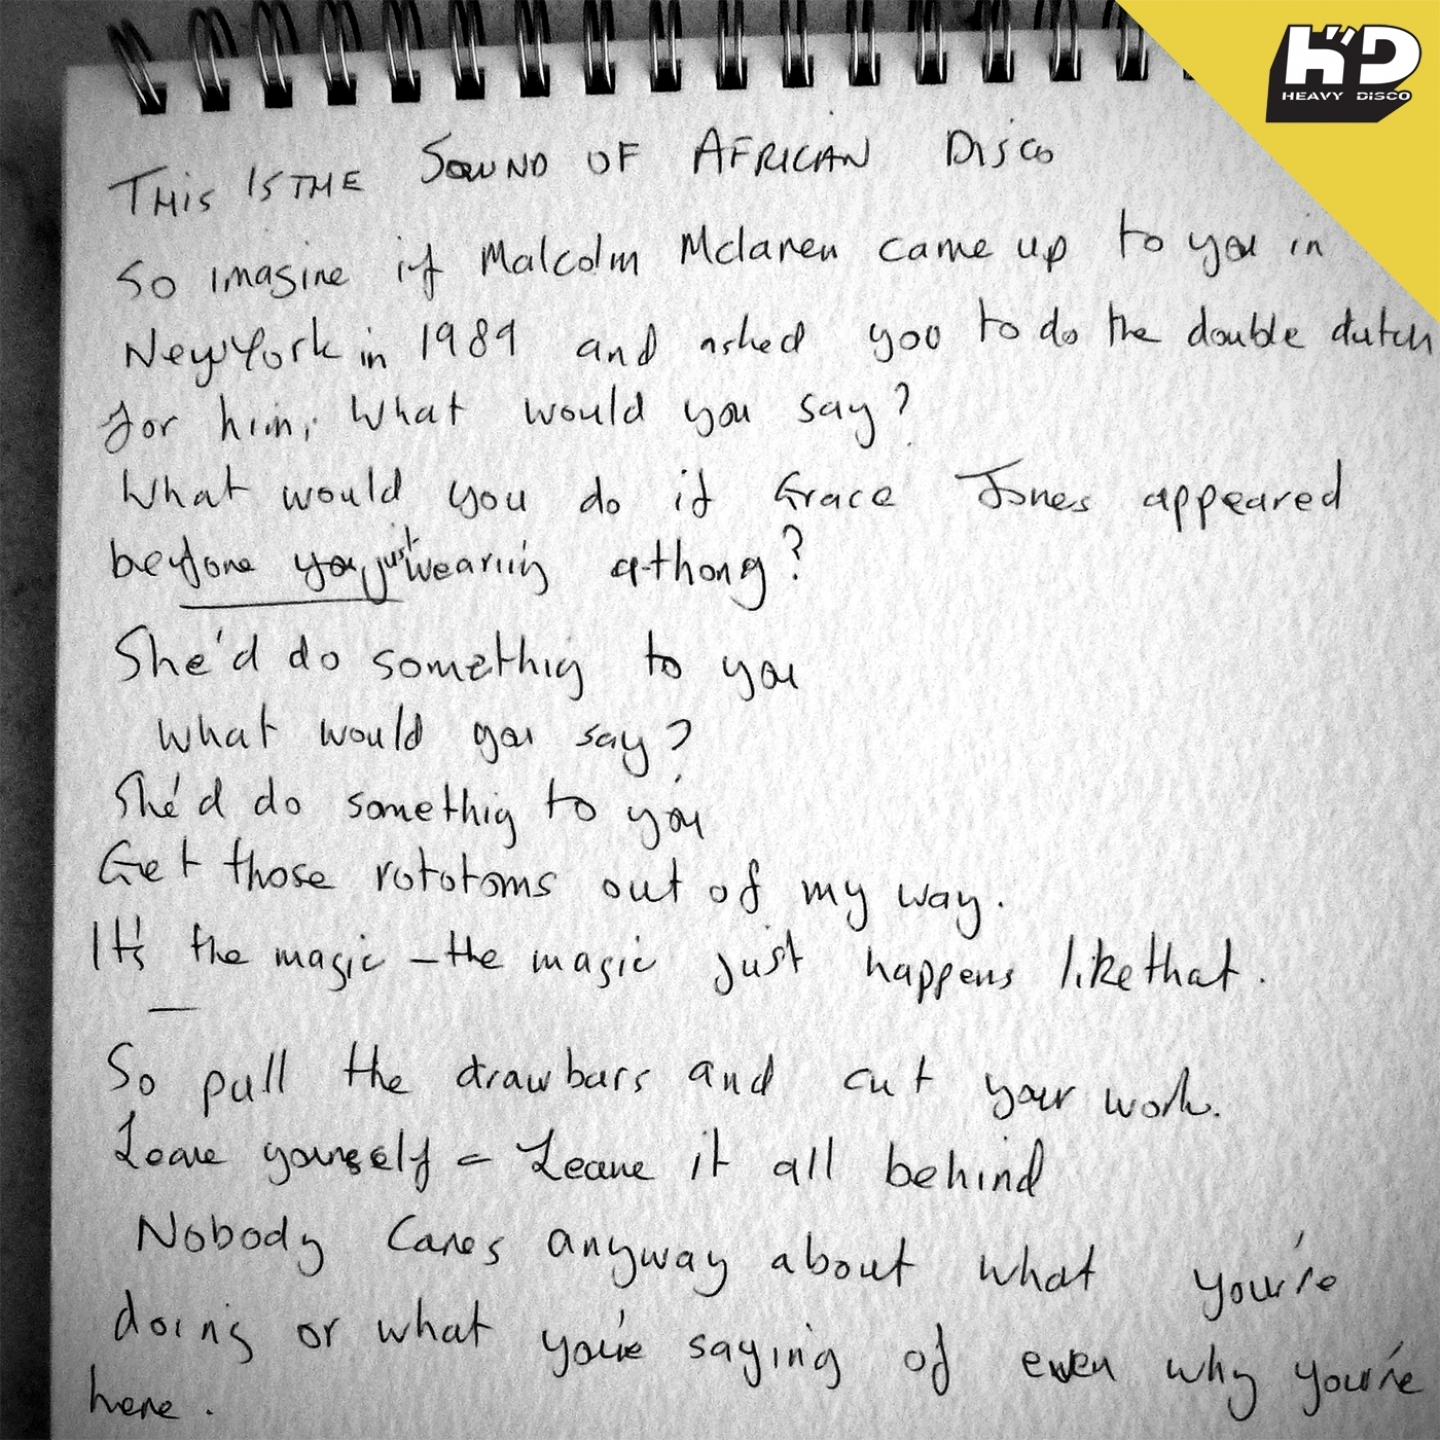 H"D
HEAVY DISCO
THIS IS THE SOUND OF AFRICAN DISCO
So imagine if Malcolm Mclaren came up to you in
New York in 1989 and asked you to do the double dutch
for him, What would you say?
What would you do if Grace Jones appeared
before you, just wearing a thong?
She'd do somethig to you
What would you say?
She'd do somethig to you
Get those rototoms out of my way.
It's the magic – the magic just happens like that.
So pull the drawbars and cut your work.
Leave yourself – Leave it all behind
Nobody cares anyway about what you're
doing or what you're saying of even why you're
here.